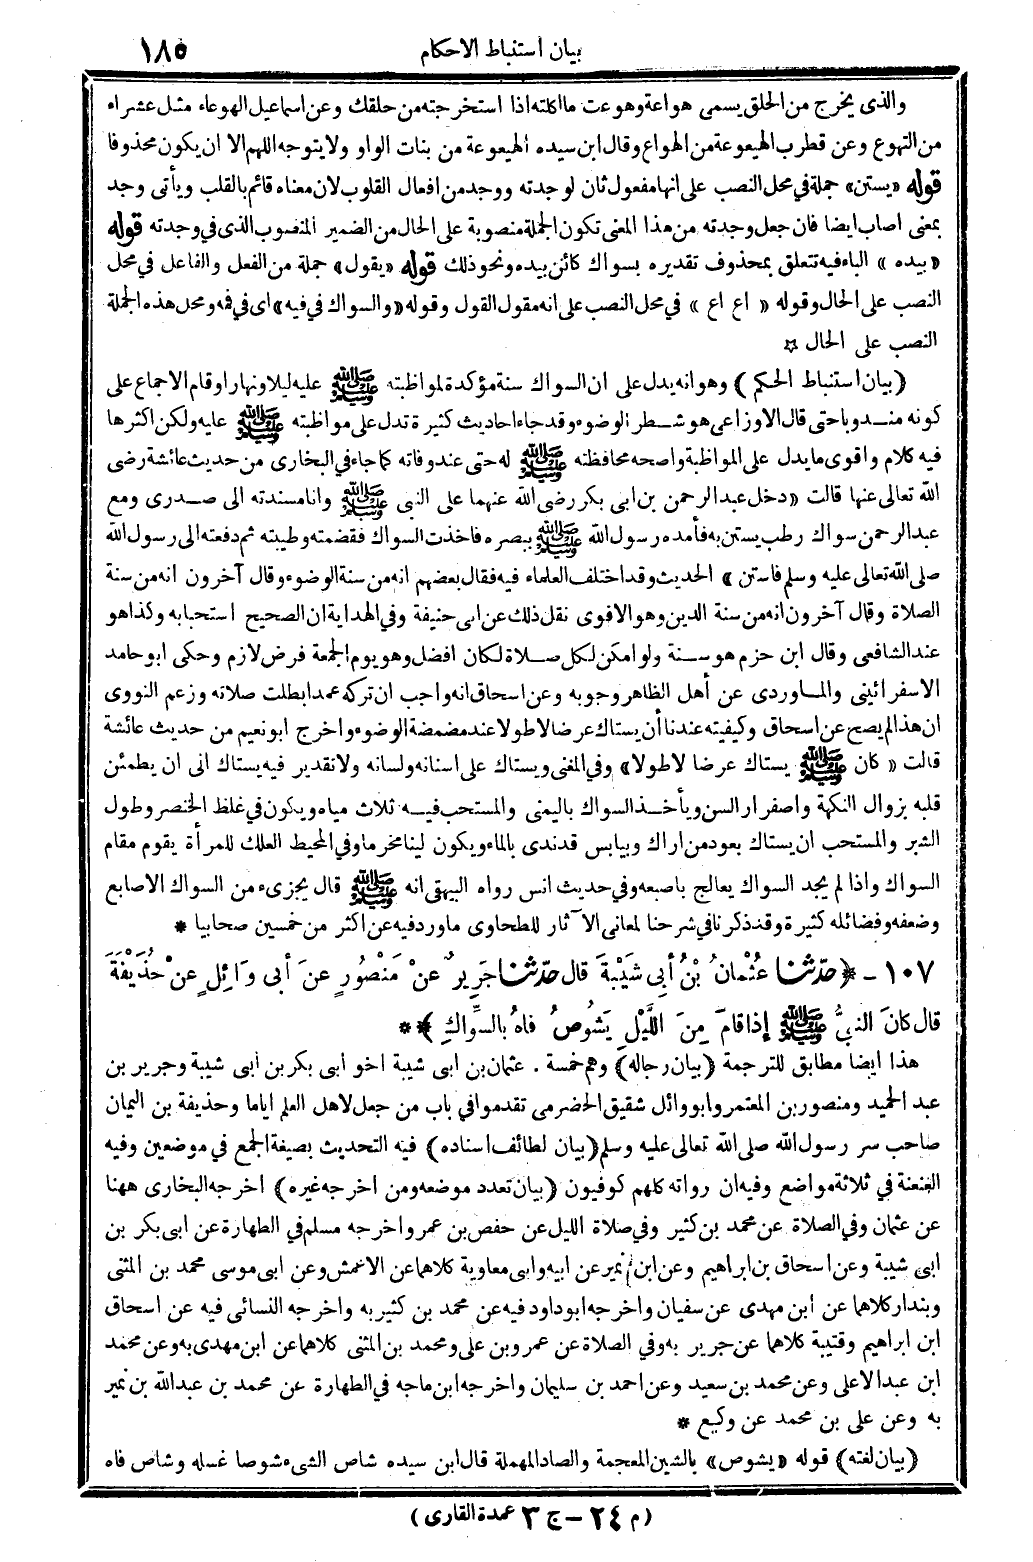 بيان استنباط الاحكام ١٨٥
والذى يخرج من الحلق يسمى هواعة وهوعت مااكلته اذا استخرجته من حلقك وعن اسماعيل الهوعاء مثل عشراء
من التهوع وعن قطرب الهيعوعة من الهواع وقال ابن سيده الهيعوعة من بنات الواو ولا يتوجه اللهم الا ان يكون محذوفا
قوله «يستن» جملة في محل النصب على انها مفعول ثان لوجدته ووجد من افعال القلوب لان معناه قائم بالقلب ويأتى وجد
بمعنى اصاب ايضا فان جعل وجدته من هذا المعنى تكون الجملة منصوبة على الحال من الضمير المنصوب الذى في وجدته قوله
«بيده» الباء فيه تتعلق بمحذوف تقديره بسواك كائن بيده ونحو ذلك قوله «يقول» جملة من الفعل والفاعل في محل
النصب على الحال وقوله «اع اع» في محل النصب على انه مقول القول وقوله «والسواك في فيه» اى في فمه ومحل هذه الجملة
النصب على الحال ☆
(بيان استنباط الحكم) وهو انه يدل على ان السواك سنة مؤكدة لمواظبته ﷺ عليه ليلا ونهارا وقام الاجماع على
كونه مندوبا حتى قال الاوزاعى هو شطر الوضوء وقد جاء احاديث كثيرة تدل على مواظبته ﷺ عليه ولكن اكثرها
فيه كلام واقوى مايدل على المواظبة واصحه محافظته ﷺ له حتى عند وفاته كما جاء في البخارى من حديث عائشة رضى
الله تعالى عنها قالت «دخل عبد الرحمن بن ابى بكر رضى الله عنهما على النبى ﷺ وانا مسندته الى صدرى ومع
عبد الرحمن سواك رطب يستن به فأمده رسول الله ﷺ ببصره فاخذت السواك فقضمته وطيبته ثم دفعته الى رسول الله
صلى الله تعالى عليه وسلم فاستن» الحديث وقد اختلف العلماء فيه فقال بعضهم انه من سنة الوضوء وقال آخرون انه من سنة
الصلاة وقال آخرون انه من سنة الدين وهو الاقوى نقل ذلك عن ابى حنيفة وفي الهداية ان الصحيح استحبابه وكذا هو
عند الشافعى وقال ابن حزم هو سنة ولو امكن لكل صلاة لكان افضل وهو يوم الجمعة فرض لازم وحكى ابو حامد
الاسفرائينى والماوردى عن أهل الظاهر وجوبه وعن اسحاق انه واجب ان تركه عمدا بطلت صلاته وزعم النووى
ان هذا لم يصح عن اسحاق وكيفيته عندنا أن يستاك عرضا لا طولا عند مضمضة الوضوء واخرج ابو نعيم من حديث عائشة
قالت «كان ﷺ يستاك عرضا لا طولا» وفي المغنى ويستاك على اسنانه ولسانه ولا تقدير فيه يستاك الى ان يطمئن
قلبه بزوال النكهة واصفرار السن ويأخذ السواك باليمنى والمستحب فيه ثلاث مياه ويكون في غلظ الخنصر وطول
الشبر والمستحب ان يستاك بعود من اراك وبيابس قد ندى بالماء ويكون لينا مخرما وفي المحيط العلك للمرأة يقوم مقام
السواك واذا لم يجد السواك يعالج باصبعه وفي حديث انس رواه البيهقى انه ﷺ قال يجزىء من السواك الاصابع
وضعفه وفضائله كثيرة وقد ذكرنا في شرحنا لمعانى الآثار للطحاوى ماورد فيه عن اكثر من خمسين صحابيا *
١٠٧ - ﴿حدّثنا عُثْمانُ بْنُ أبي شَيْبَةَ قال حدّثنا جَرِيرٌ عنْ مَنْصُورٍ عنْ أبي وَائِلٍ عنْ حُذَيْفَةَ
قال كانَ النبيُّ ﷺ إذا قامَ مِنَ اللَّيْلِ يَشُوصُ فاهُ بالسِّوَاكِ﴾ *
هذا ايضا مطابق للترجمة (بيان رجاله) وهم خمسة . عثمان بن ابى شيبة اخو ابى بكر بن ابى شيبة وجرير بن
عبد الحميد ومنصور بن المعتمر وابو وائل شقيق الحضرمى تقدموا في باب من جعل لاهل العلم اياما وحذيفة بن اليمان
صاحب سر رسول الله صلى الله تعالى عليه وسلم (بيان لطائف اسناده) فيه التحديث بصيغة الجمع في موضعين وفيه
العنعنة في ثلاثة مواضع وفيه ان رواته كلهم كوفيون (بيان تعدد موضعه ومن اخرجه غيره) اخرجه البخارى ههنا
عن عثمان وفي الصلاة عن محمد بن كثير وفي صلاة الليل عن حفص بن عمر واخرجه مسلم في الطهارة عن ابى بكر بن
ابى شيبة وعن اسحاق بن ابراهيم وعن ابن نمير عن ابيه وابى معاوية كلاهما عن الاعمش وعن ابى موسى محمد بن المثنى
وبندار كلاهما عن ابن مهدى عن سفيان واخرجه ابو داود فيه عن محمد بن كثير به واخرجه النسائى فيه عن اسحاق
ابن ابراهيم وقتيبة كلاهما عن جرير به وفي الصلاة عن عمرو بن على ومحمد بن المثنى كلاهما عن ابن مهدى به وعن محمد
ابن عبد الاعلى وعن محمد بن سعيد وعن احمد بن سليمان واخرجه ابن ماجه في الطهارة عن محمد بن عبد الله بن نمير
به وعن على بن محمد عن وكيع *
(بيان لغته) قوله «يشوص» بالشين المعجمة والصاد المهملة قال ابن سيده شاص الشىء شوصا غسله وشاص فاه
(م ٢٤ - ج ٣ عمدة القارى)